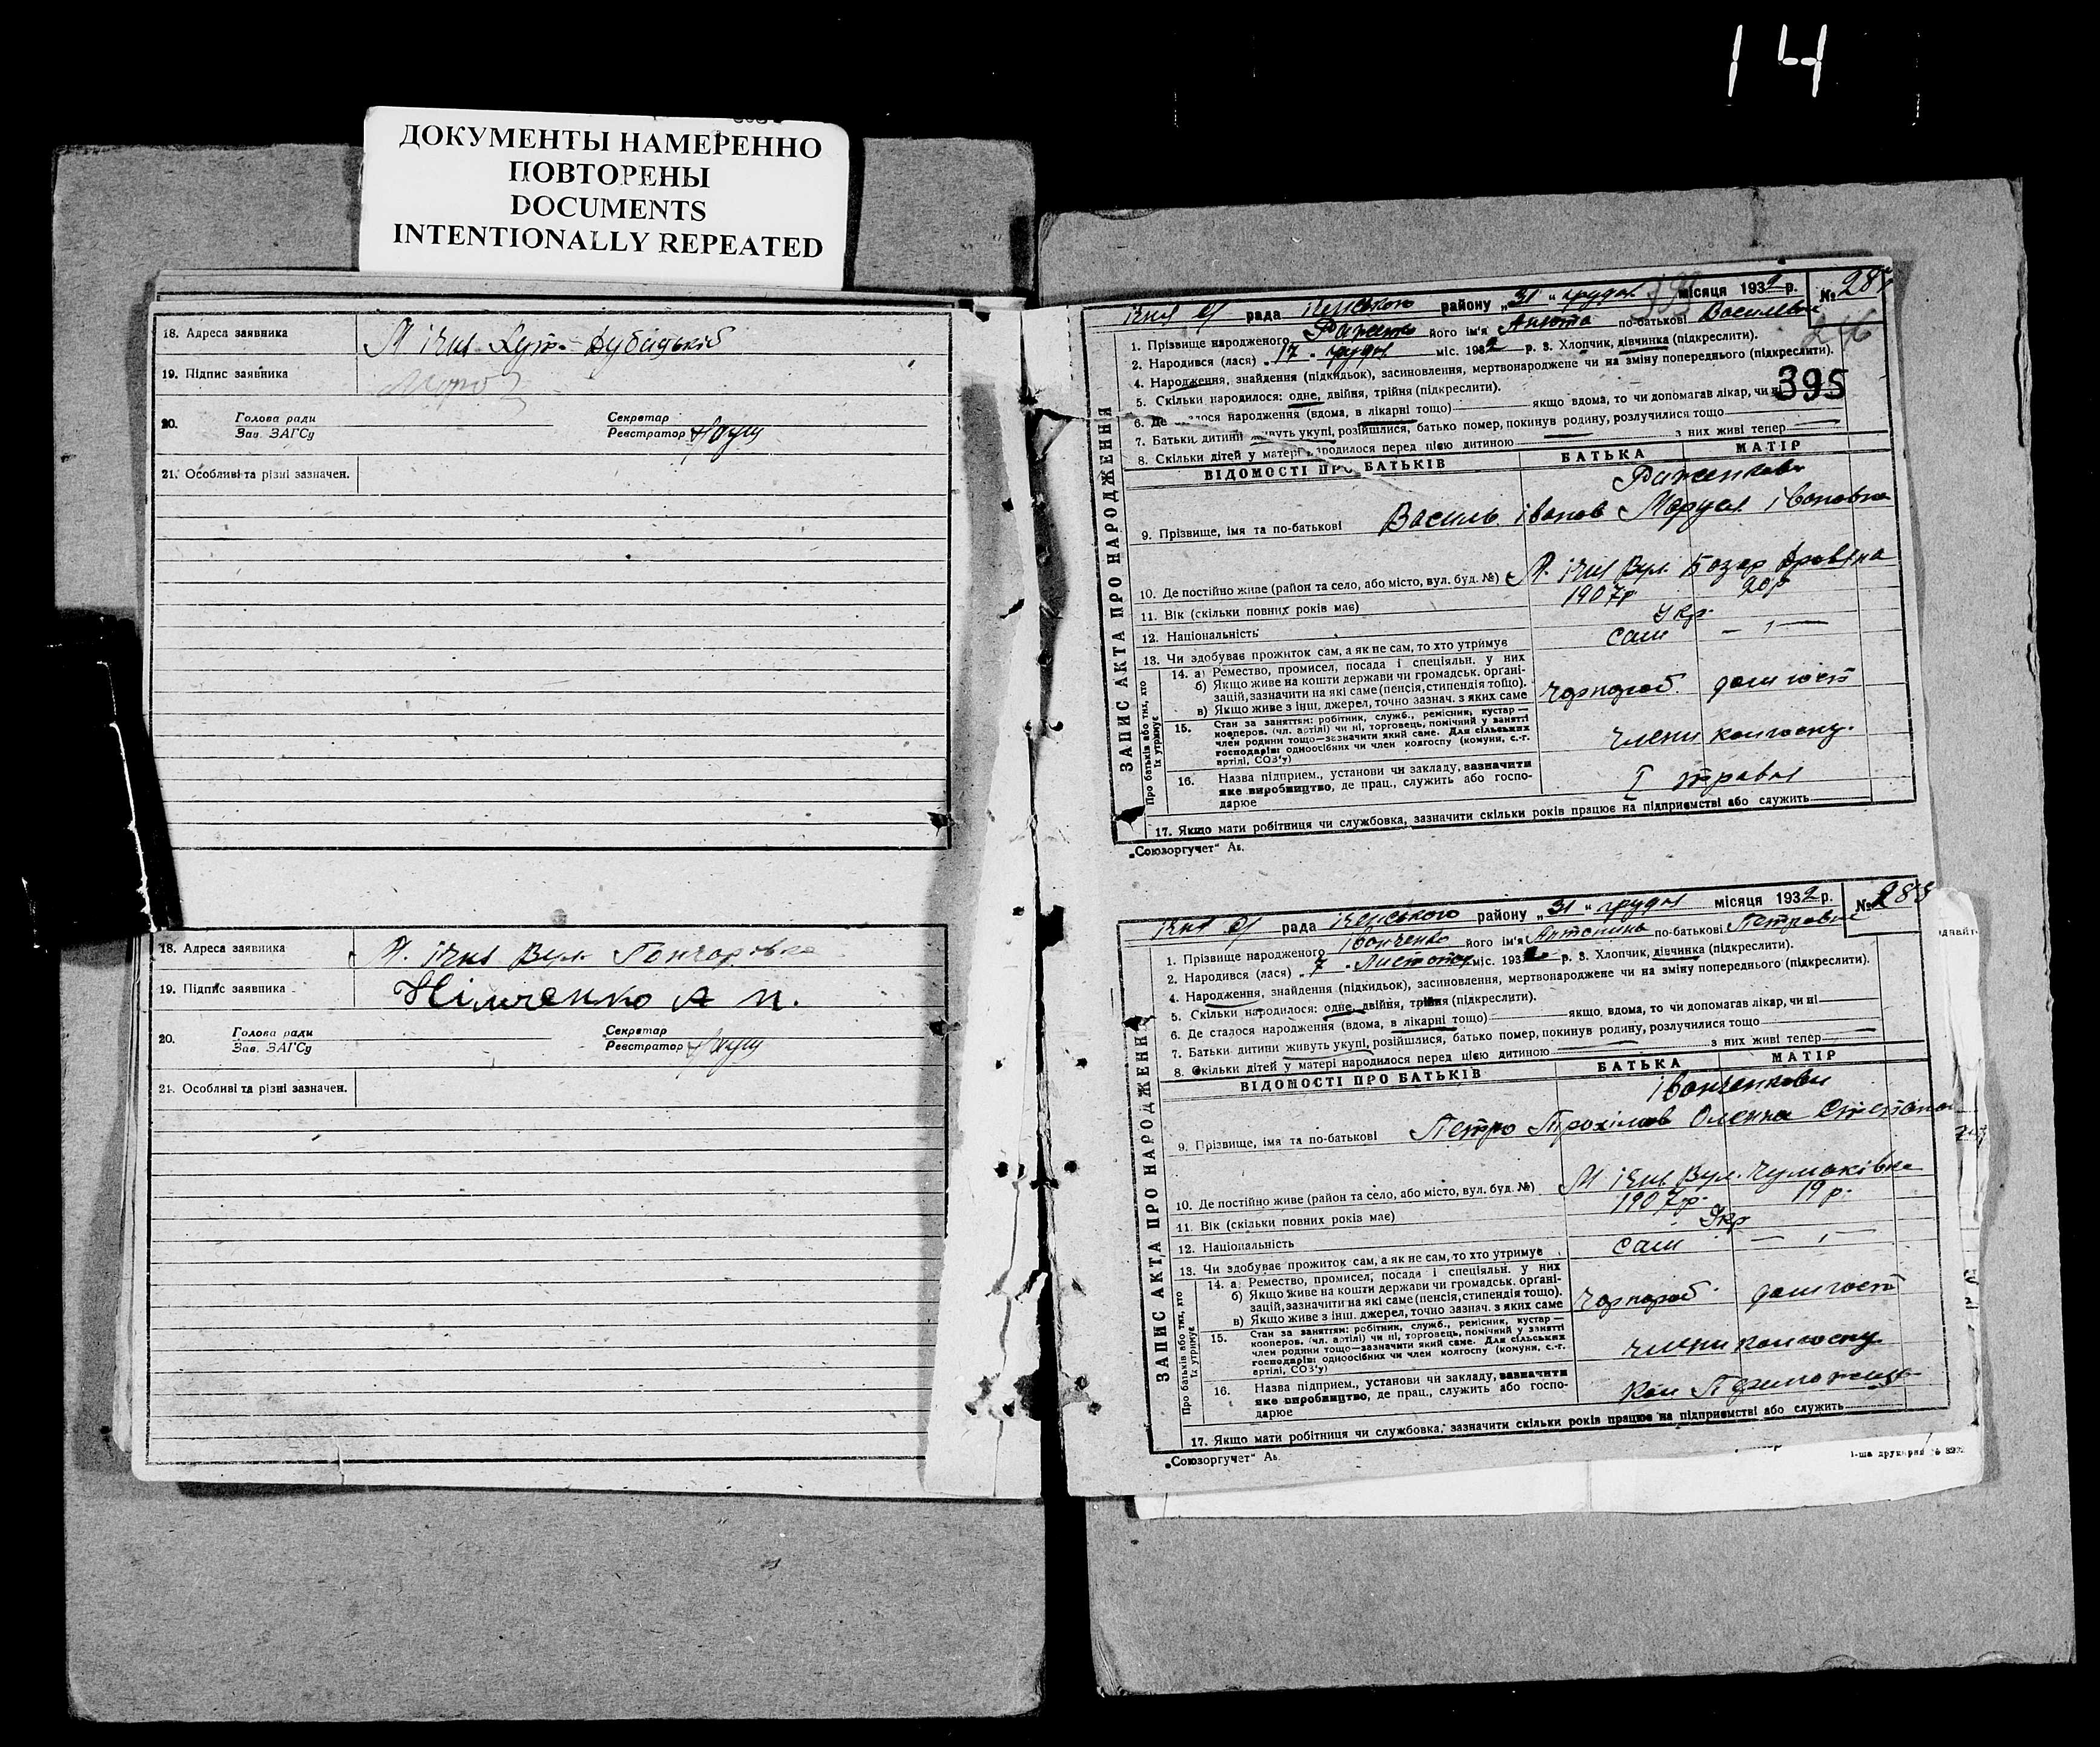 14
ДОКУМЕНТЫ НАМЕРЕННО
ПОВТОРЕНЫ
DOCUMENTS
INTENTIONALLY REPEATED
18. Адреса заявника М Ічня
19. Підпис заявника
20. Голова ради Секретар
Зав. ЗАГСу Реєстратор
21. Особливі та різні зазначен.
18. Адреса заявника М. Ічня Вул. Гончарівка
19. Підпис заявника Німченко А П.
20. Голова ради Секретар
Зав. ЗАГСу Реєстратор
21. Особливі та різні зазначен.
ЗАПИС АКТА ПРО НАРОДЖЕННЯ
рада Іченського району „31" грудня місяця 1932 р. № 287
1. Прізвище народженого його ім'я Анюта по-батькові Василівна
2. Народився (лася) „17" грудня міс. 1932 р. 3. Хлопчик, дівчинка (підкреслити).
4. Народження, знайдення (підкидьок), засиновлення, мертвонароджене чи на зміну попереднього (підкреслити).
395
5. Скільки народилося: одне, двійня, трійня (підкреслити).
6. Де сталося народження (вдома, в лікарні тощо) якщо вдома, то чи допомагав лікар, чи ні
7. Батьки дитини живуть укупі, розійшлися, батько помер, покинув родину, розлучилися тощо
8. Скільки дітей у матері народилося перед цією дитиною — з них живі тепер —
ВІДОМОСТІ ПРО БАТЬКІВ БАТЬКА МАТІР
9. Прізвище, імя та по-батькові Василь Іванов Маруся Івановна
10. Де постійно живе (район та село, або місто, вул. буд. №) М. Ічня Вул. Базар
11. Вік (скільки повних років має) 1907р 20р
12. Національність Укр.
13. Чи здобуває прожиток сам, а як не сам, то хто утримує сам — „ —
Про батьків або тих, хто їх утримує
14. а) Ремество, промисел, посада і спеціяльн. у них
б) Якщо живе на кошти держави чи громадськ. органі-
зацій, зазначити на які саме (пенсія, стипендія тощо).
в) Якщо живе з інш. джерел, точно зазнач. з яких саме
чорнороб. дом госп
15. Стан за заняттям: робітник, служб., ремісник, кустар—
кооперов. (чл. артілі) чи ні, торговець, помічний у занятті
член родини тощо—зазначити який саме. Для сільських
господарів: одноосібних чи член колгоспу (комуни, с.-г.
артілі, СОЗ'у)
члени колгоспу.
16. Назва підприєм., установи чи закладу, зазначити
яке виробництво, де прац., служить або госпо-
дарює
I травня
17. Якщо мати робітниця чи службовка, зазначити скільки років працює на підприємстві або служить
„Союзоргучет" Ав.
ЗАПИС АКТА ПРО НАРОДЖЕННЯ
рада Іченського району „31" грудня місяця 1932 р. № 288
1. Прізвище народженого Іванченко його ім'я Антонина по-батькові Петровна
2. Народився (лася) „7" Листопад міс. 1932 р. 3. Хлопчик, дівчинка (підкреслити).
4. Народження, знайдення (підкидьок), засиновлення, мертвонароджене чи на зміну попереднього (підкреслити).
5. Скільки народилося: одне, двійня, трійня (підкреслити).
6. Де сталося народження (вдома, в лікарні тощо) якщо, вдома, то чи допомагав лікар, чи ні
7. Батьки дитини живуть укупі, розійшлися, батько помер, покинув родину, розлучилися тощо
8. Скільки дітей у матері народилося перед цією дитиною — з них живі тепер —
ВІДОМОСТІ ПРО БАТЬКІВ БАТЬКА МАТІР
Іванченкови
9. Прізвище, імя та по-батькові Петро Трохимов Оленна
10. Де постійно живе (район та село, або місто, вул. буд. №) М Ічня Вул. Чумаківка
11. Вік (скільки повних років має) 1907р. 19 р.
12. Національність Укр
13. Чи здобуває прожиток сам, а як не сам, то хто утримує сам — „ —
Про батьків або тих, хто їх утримує
14. а) Ремество, промисел, посада і спеціяльн. у них
б) Якщо живе на кошти держави чи громадськ. органі-
зацій, зазначити на які саме (пенсія, стипендія тощо).
в) Якщо живе з інш. джерел, точно зазнач. з яких саме
чорнороб. дом госп
15. Стан за заняттям: робітник, служб., ремісник, кустар—
кооперов. (чл. артілі) чи ні, торговець, помічний у занятті
член родини тощо—зазначити який саме. Для сільських
господарів: одноосібних чи член колгоспу (комуни, с.-г.
артілі, СОЗ'у)
члени колгоспу
16. Назва підприєм., установи чи закладу, зазначити
яке виробництво, де прац., служить або госпо-
дарює
17. Якщо мати робітниця чи службовка, зазначити скільки років працює на підприємстві або служить
„Союзоргучет" Ав.